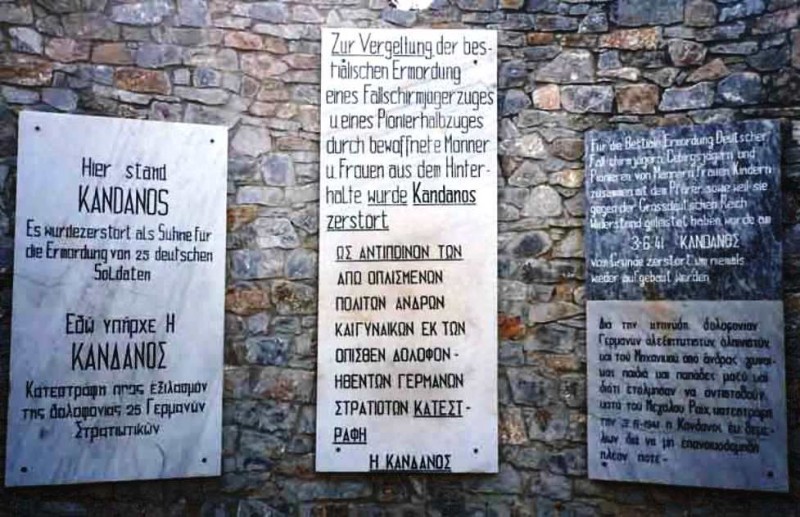 Hier stand
KANDANOS
Es wurdezerstort als Sühne für
die Ermordung von 25 deutschen
Soldaten
Εδώ υπήρχε Η
ΚΑΝΔΑΝΟΣ
Κατεστράφη προς εξιλασμόν
της δολοφονίας 25 Γερμανών
Στρατιωτικών
Zur Vergeltung der bes-
tialischen Ermordung
eines Fallschirmjägerzuges
u.eines Pionierhalbzuges
durch bewaffnete Männer
u. Frauen aus dem Hinter-
halte wurde Kandanos
zerstort
ΩΣ ΑΝΤΙΠΟΙΝΟΝ ΤΩΝ
ΑΠΟ ΟΠΛΙΣΜΕΝΩΝ
ΠΟΛΙΤΩΝ ΑΝΔΡΩΝ
ΚΑΙ ΓΥΝΑΙΚΩΝ ΕΚ ΤΩΝ
ΟΠΙΣΘΕΝ ΔΟΛΟΦΟΝ-
ΗΘΕΝΤΩΝ ΓΕΡΜΑΝΩΝ
ΣΤΡΑΤΙΟΤΩΝ ΚΑΤΕΣΤ-
ΡΑΦΗ
Η ΚΑΝΔΑΝΟΣ
Für die Bestiale Ermordung Deutscher
Fallschirmjägern, Gebirgsjägern und
Pionieren von Männern, Frauen Kindern
zusammen mit dem Pfarrer sowie weil sie
gegen der Grossdeutschen Reich
Widerstand geleistet haben wurde am
3·6·41 KANDANOΣ
Vom Grunde zerstort um niemals
wieder aufgebaut worden
Δια την κτηνώδη δολοφονίαν
Γερμανών αλεξιπτωτιστών αλπινιστών
και του Μηχανικού από άνδρας γυναί-
κας παιδιά και παπάδες μαζύ και
διότι ετόλμησαν να αντισταθούν
κατά του Μεγάλου Ράιχ κατεστράφη
την 3-6-1941 η Κάνδανος εκ θεμε-
λίων δια να μη επανοικοδομηθή
πλέον ποτέ-